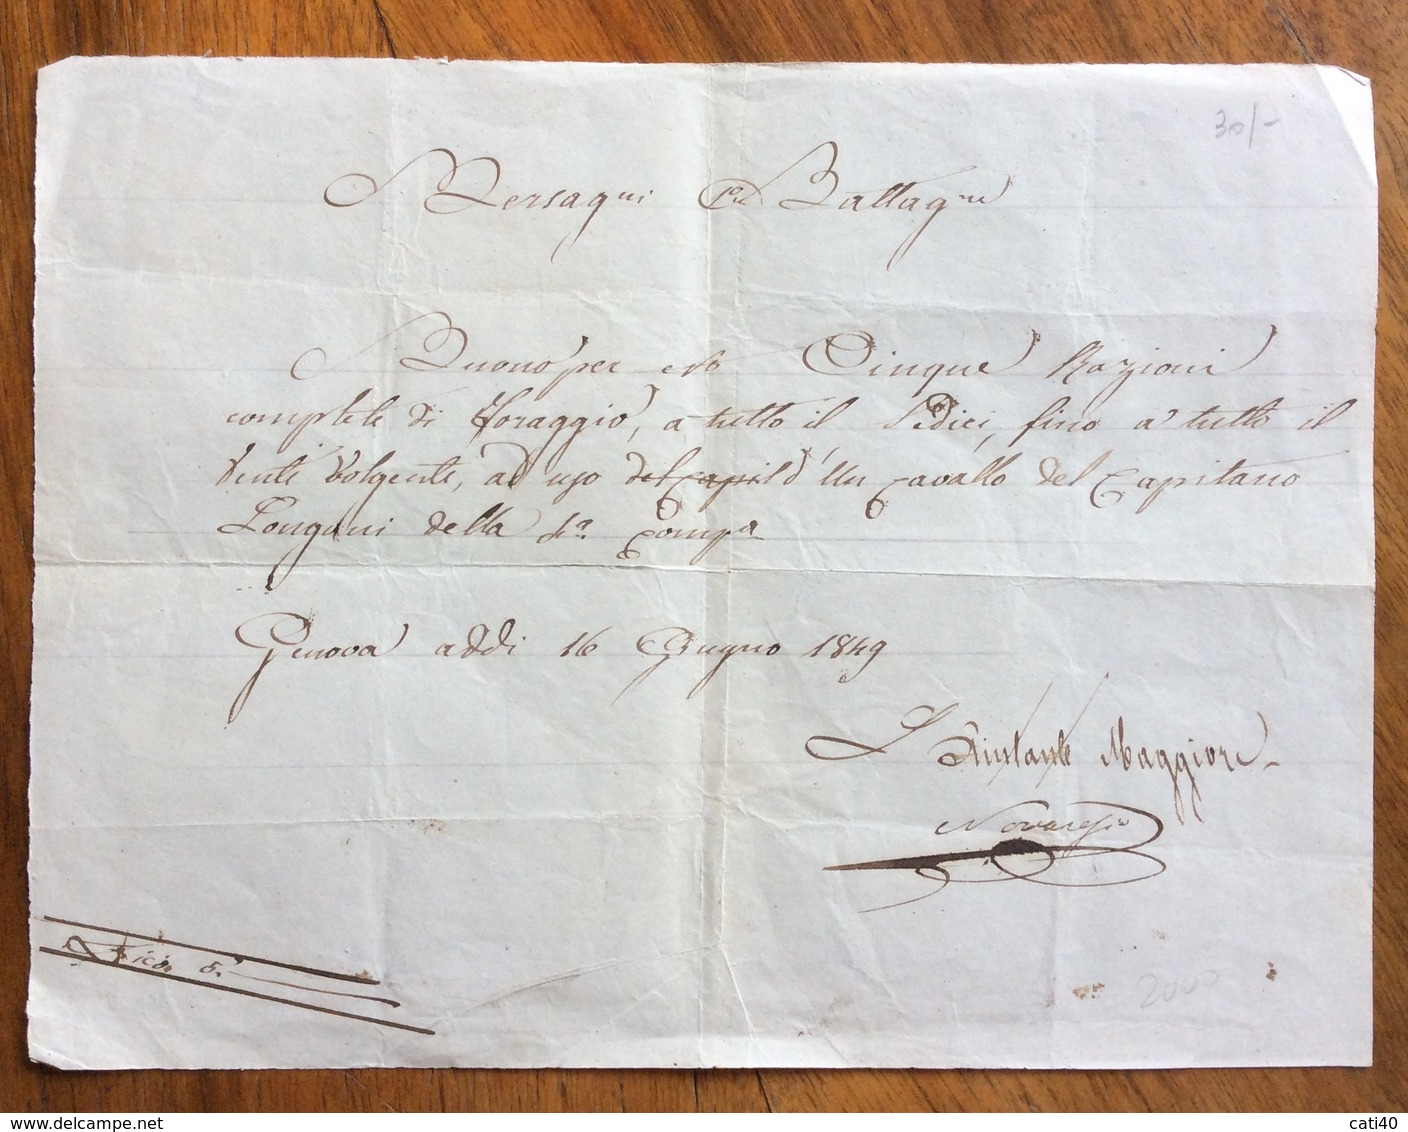 30/-
Bersaglieri 1º Battagne
Buono per N.º Cinque Razioni
complete di foraggio, a tutto il Sedici, fino a tutto il
venti volgente, ad uso del capit d'un cavallo del Capitano
Longoni della 4a. Compa
Genova addi 16 Giugno 1849
L'Aiutante Maggiore
Novaresio
Dico 5.
2000
cati40